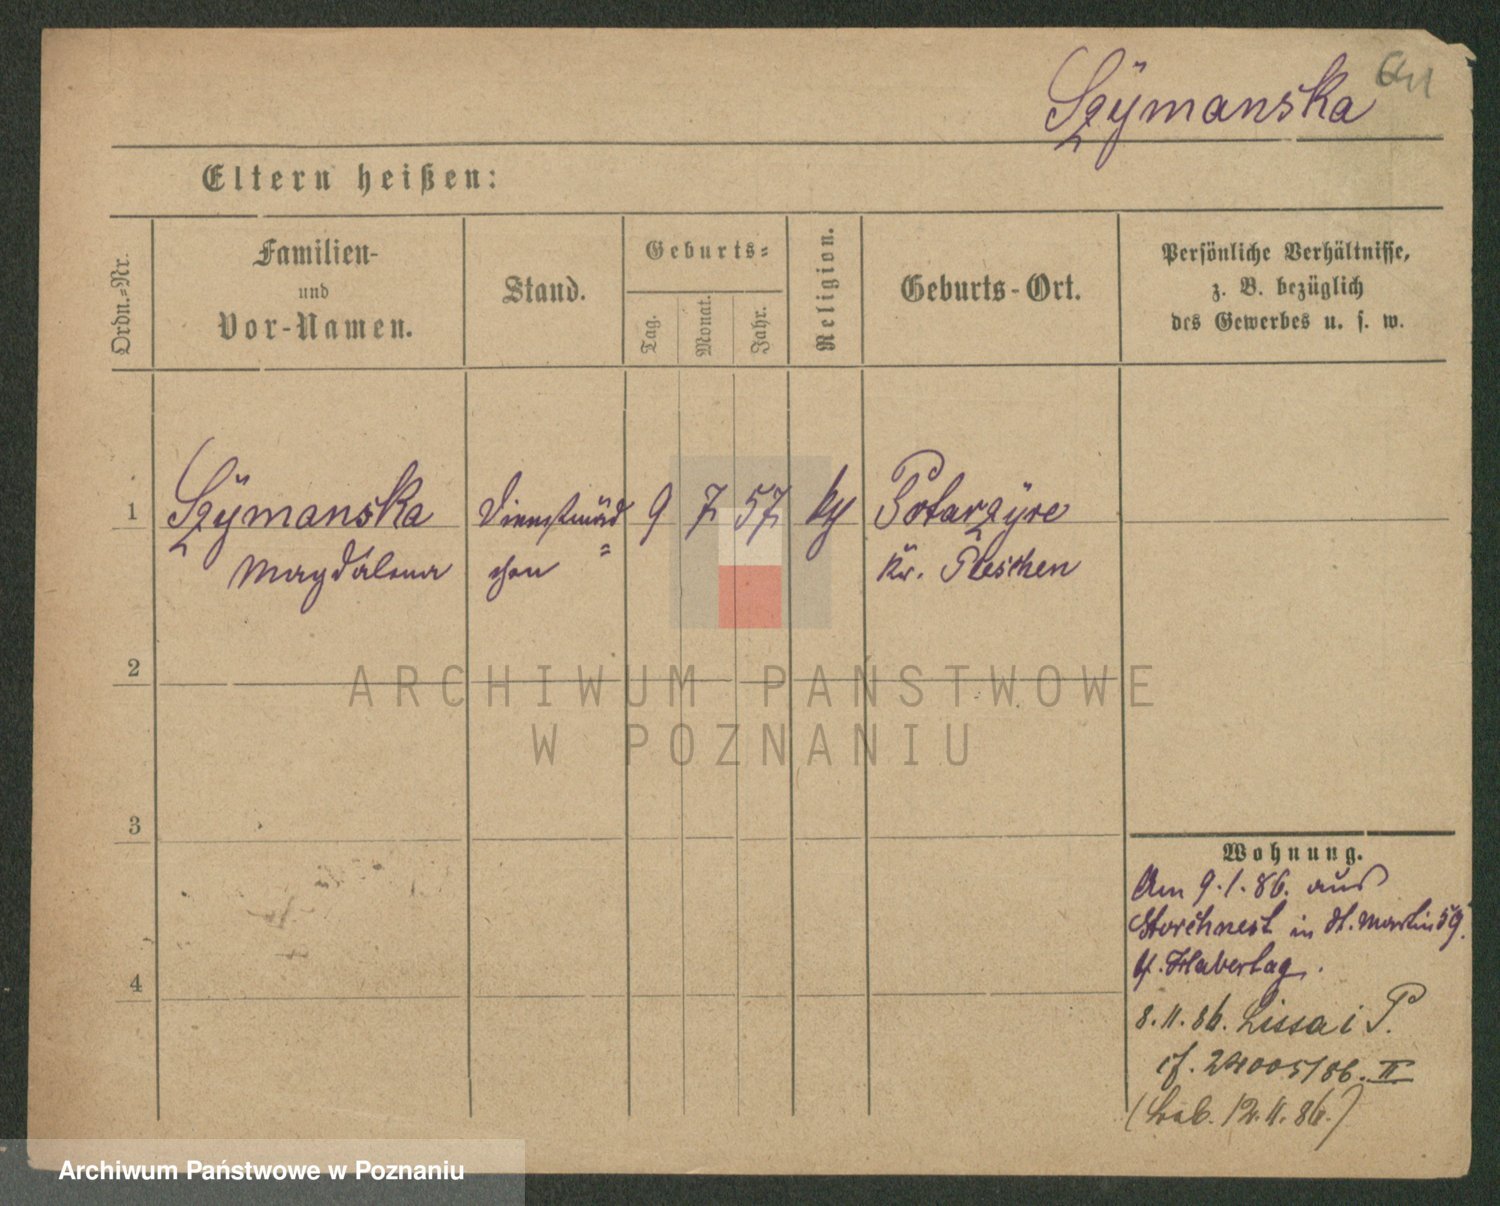 Szÿmanska
641
Eltern heißen:
Ordn.-Nr.
Familien-
und
Vor-Namen.
Stand.
Geburts-
Tag.
Monat.
Jahr.
Religion.
Geburts-Ort.
Persönliche Verhältnisse,
z. B. bezüglich
des Gewerbes u. s. w.
1 Szÿmanska Dienstmäd 9 7 57 Potarzÿce
Magdalena chen Kr. Pleschen
2
3
4
ARCHIWUM PAŃSTWOWE
W POZNANIU
Wohnung.
Am 9.1.86. aus
Storchnest in St. Martin 59.
8.11.86. Lissa i P.
cf. 24005/86. II
12.11.86.)
Archiwum Państwowe w Poznaniu